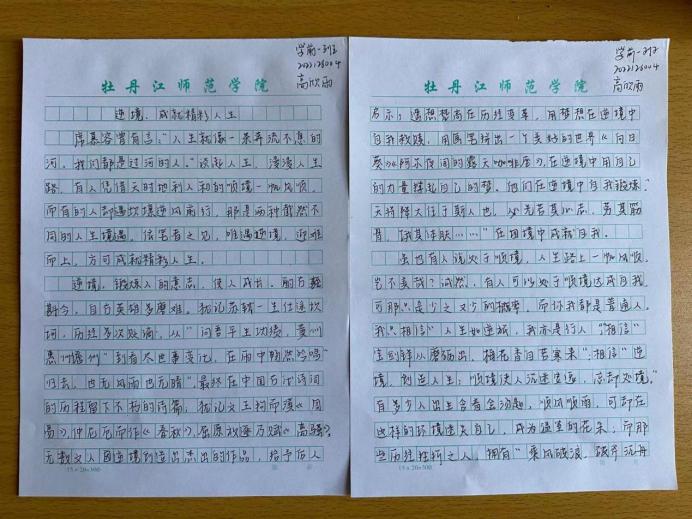 学前一班
2022128004
高欣雨
牡丹江师范学院
逆境,成就精彩人生
席慕容曾有言:"人生就像一条奔流不息的
河,我们都是过河的人。"谈起人生,漫漫人生
路,有人凭借天时地利人和的顺境一帆风顺,
而有的人却遇坎壕逆风前行,那是两种截然不
同的人生境遇。依笔者之见,唯遇逆境,迎难
而上,方可成就精彩人生。
逆境,锻炼人的意志,使人成长。
自古英雄多磨难。犹记苏轼一生仕途坎
坷,历经多次贬谪,从"问吾平生功绩,黄州
惠州儋州"到看尽世事变化,在雨中陶然吟唱"
归去,也无风雨也无晴",最终在中国古代诗词
的历程留下不朽的诗篇;犹记文王拘而演《周
易》,仲尼厄而作《春秋》,屈原放逐乃赋《离骚》。
无数文人因逆境创造出杰出的作品,给予后人
15×20=300
学前一班
2022128004
高欣雨
牡丹江师范学院
启示;遥想梵高在历经变革,用梦想在逆境中
自我救赎,用画笔绘出一个美好的世界《向日
葵》《阿尔夜间的露天咖啡座》,在逆境中用自己
的力量撑起自己的梦。他们在逆境中自我锻炼。"
天将降大任于斯人也,必先苦其心志,劳其筋
骨,饿其体肤……"在困境中成就自我。
也有人说处于顺境,人生路上一帆风顺,
岂不美哉?诚然,有人可以处于顺境达成自我
可那只是少之又少的概率,而你我都是普通人。
我只相信"人生如逆旅,我亦是行人"相信"
宝剑锋从磨砺出,梅花香自苦寒来"相信"逆
境,创造人生;顺境使人沉迷安逸,忘却处境。"
有多少人出生含着金汤匙,顺风顺雨,可却在
这样的环境迷失自己,成为温室的花朵,而那
些历经挫折之人,拥有"乘风破浪,破斧沉舟
15×20=300